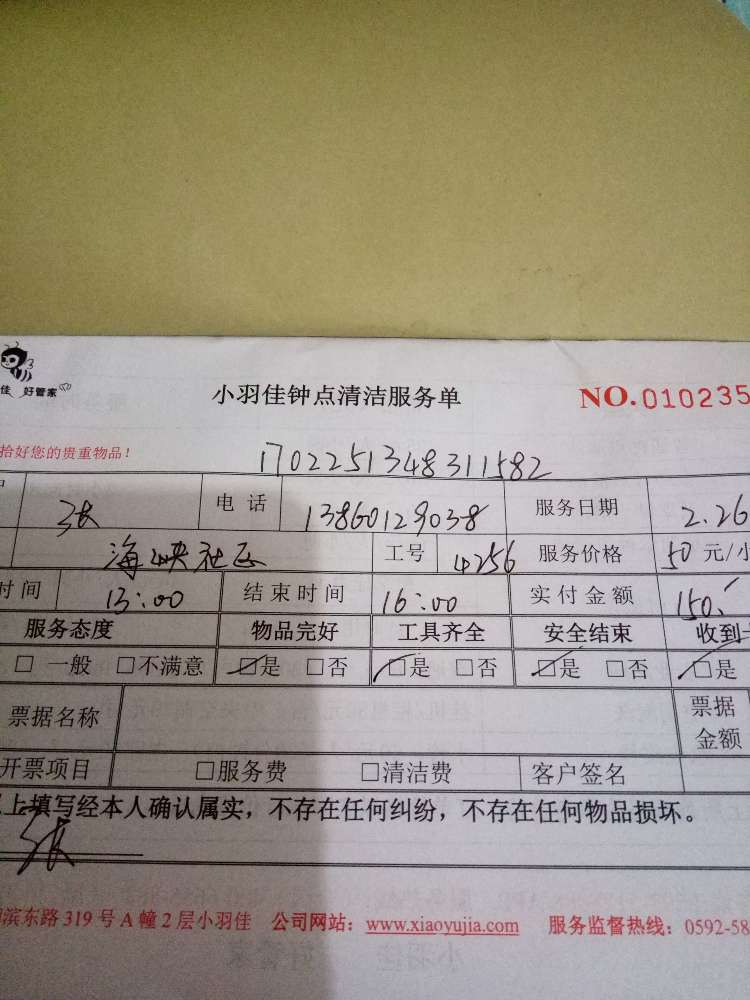 佳 好管家
小羽佳钟点清洁服务单 NO.010235
拾好您的贵重物品！
1702251348311582
张 电话 13860129038 服务日期 2.26
海峡社区 工号 4256 服务价格 50 元/小
时间 13:00 结束时间 16:00 实付金额 150.-
服务态度 物品完好 工具齐全 安全结束 收到
□ 一般 □不满意 ☑是 □否 ☑是 □否 ☑是 □否 ☑是
票据名称 票据金额
开票项目 □服务费 □清洁费 客户签名
上填写经本人确认属实，不存在任何纠纷，不存在任何物品损坏。
张
滨东路319号A幢2层小羽佳 公司网站：www.xiaoyujia.com 服务监督热线：0592-58